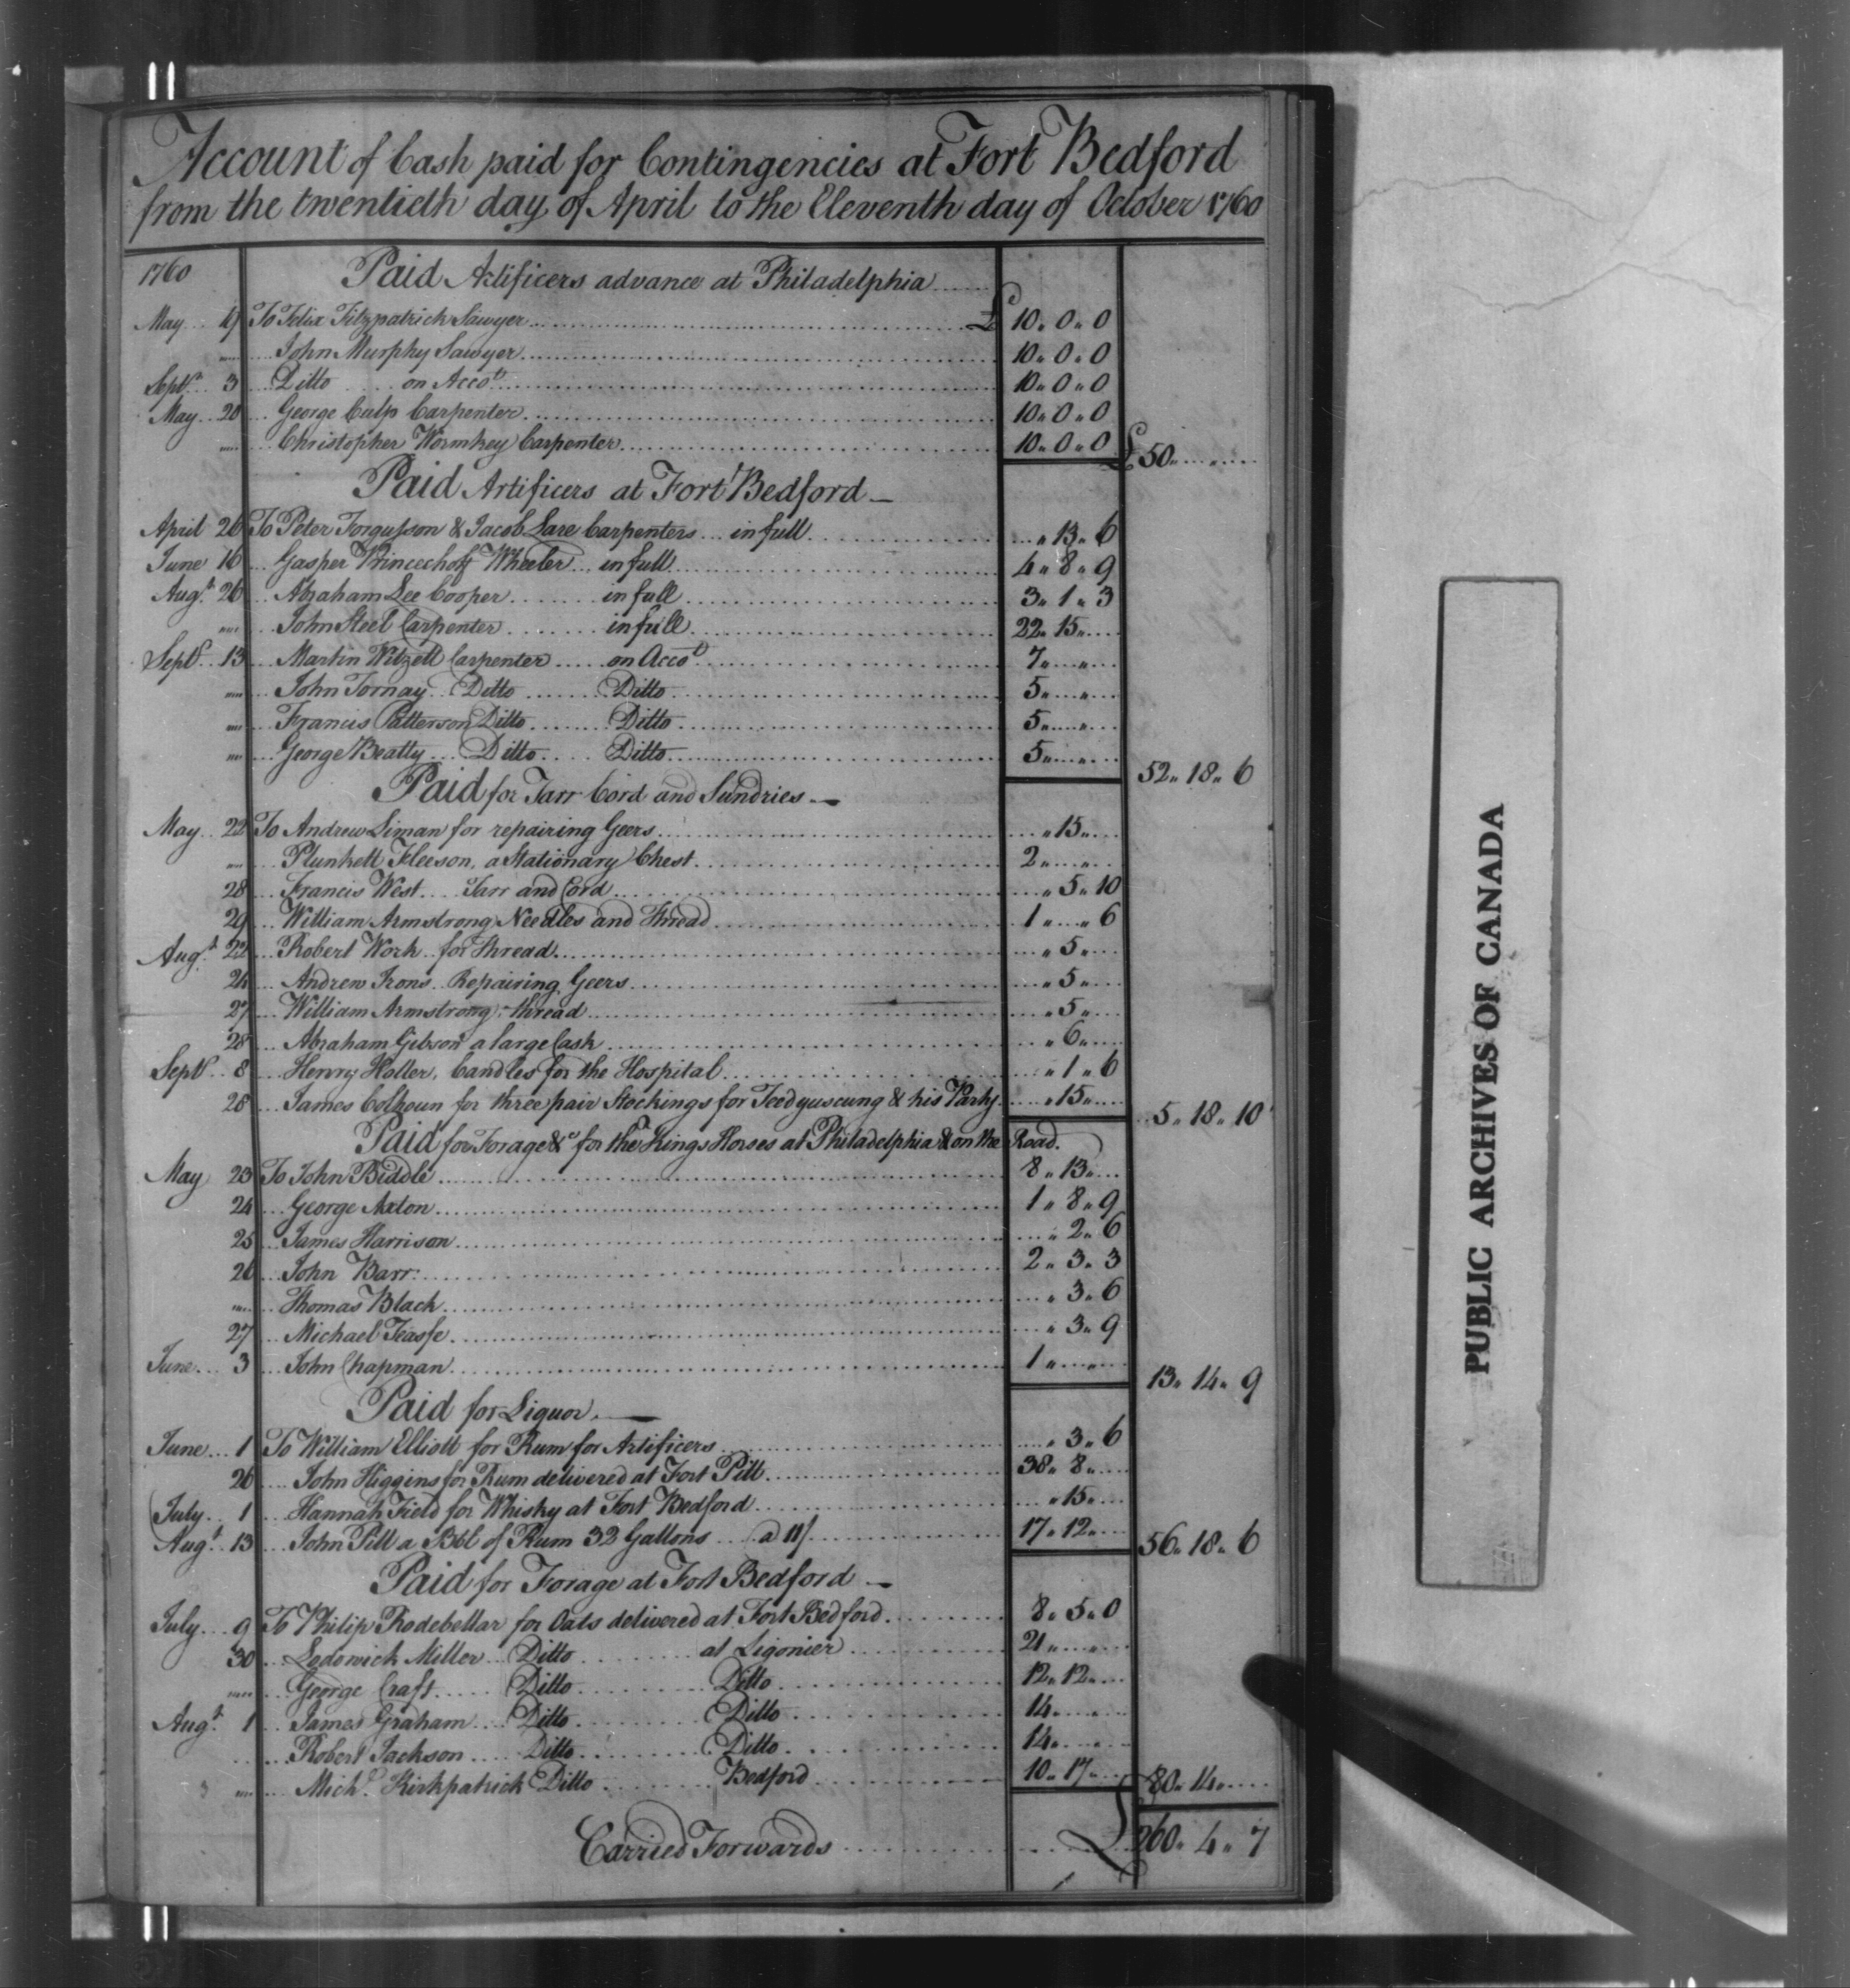 Account of Cash paid for Contingencies at Fort Bedford
from the twentieth day of April to the Eleventh day of October 1760
1760 Paid Artificers advance at Philadelphia
May 19 To Felix Fitzpatrick Sawyer £ 10 " 0 " 0
" John Murphy Sawyer 10 " 0 " 0
Septr. 3 Ditto on Accot. 10 " 0 " 0
May 20 George Culp Carpenter 10 " 0 " 0
" Christopher Wormkey Carpenter 10 " 0 " 0 £ 50 " "
Paid Artificers at Fort Bedford
April 26 To Peter Forgusson & Jacob Lare Carpenters in full " 13 " 6
June 16 Gasper Princechoff Wheeler in full 4 " 8 " 9
Augt. 26 Abraham Lee Cooper in full 3 " 1 " 3
" John Steel Carpenter in full 22 " 15 "
Septr. 13 Martin Witzell Carpenter on Accot. 7 " "
" John Tornay Ditto Ditto 5 " "
" Francis Patterson Ditto Ditto 5 " "
" George Beatty Ditto Ditto 5 " " 52 " 18 " 6
Paid for Tarr Cord and Sundries
May 22 To Andrew Liman for repairing Geers " 15 "
" Plunkett Fleeson, a Stationary Chest 2 " "
28 Francis West Tarr and Cord " 5 " 10
29 William Armstrong Needles and Thread 1 " " 6
Augt. 22 Robert Work for Thread " 5 "
24 Andrew Irons Repairing Geers " 5 "
27 William Armstrong, thread " 5 "
28 Abraham Gibson a large Cask " 6 "
Septr. 8 Henry Holler, Candles for the Hospital " 1 " 6
28 James Colhoun for three pair Stockings for Teedyuscung & his Party " 15 " 5 " 18 " 10
Paid for Forage &c for the Kings Horses at Philadelphia & on the Road.
May 23 To John Biddle 8 " 13 "
24 George Axton 1 " 8 " 9
25 James Harrison " 2 " 6
26 John Barr 2 " 3 " 3
" Thomas Black " 3 " 6
27 Michael Teasse " 3 " 9
June 3 John Chapman 1 " " 13 " 14 " 9
Paid for Liquor.
June 1 To William Elliott for Rum for Artificers " 3 " 6
26 John Higgins for Rum delivered at Fort Pitt 38 " 8 "
July 1 Hannah Field for Whisky at Fort Bedford " 15 "
Augt. 13 John Pitt a Bbl of Rum 32 Gallons a 11/ 17 " 12 " 56 " 18 " 6
Paid for Forage at Fort Bedford
July 9 To Philip Rodebellar for Oats delivered at Fort Bedford 8 " 5 " 0
30 Lodowick Miller Ditto at Ligonier 21 " "
" George Craft Ditto Ditto 12 " 12 "
Augt. 1 James Graham Ditto Ditto 14 "
Robert Jackson Ditto Ditto 14 "
" Michl. Kirkpatrick Ditto Bedford 10 " 17 " 80 " 14 "
Carried Forwards £ 260 " 4 " 7
PUBLIC ARCHIVES OF CANADA